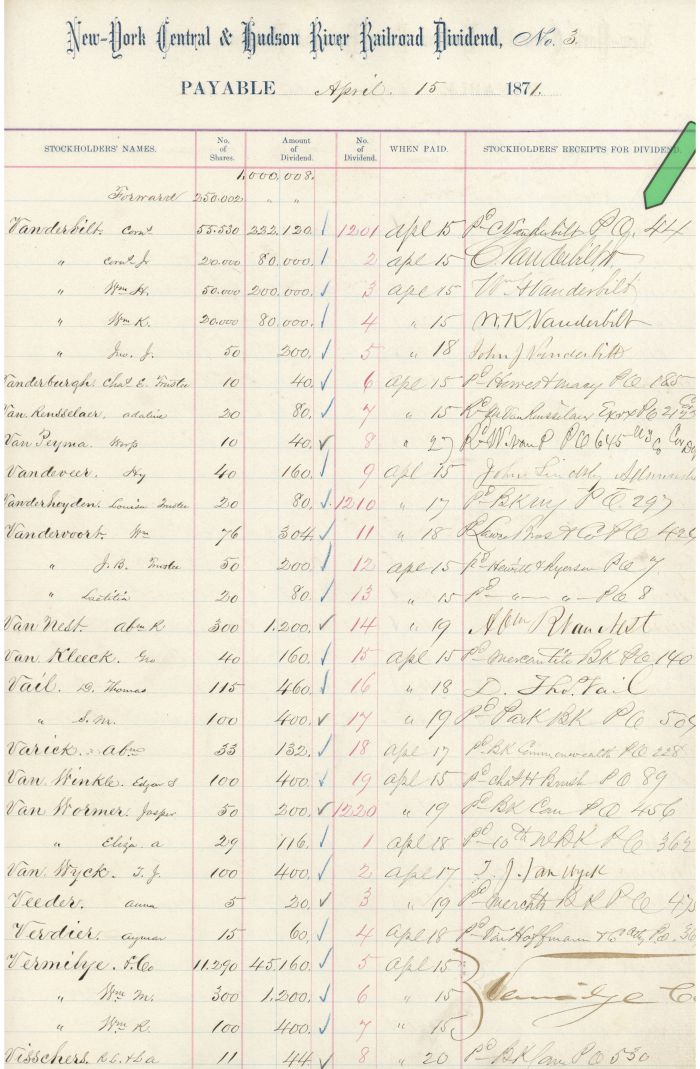 New-York Central & Hudson River Railroad Dividend, No. 3.
PAYABLE April. 15 1871.
STOCKHOLDERS' NAMES. No. of Shares. Amount of Dividend. No. of Dividend. WHEN PAID. STOCKHOLDERS' RECEIPTS FOR DIVIDEND.
1,000,008.
Forward 250.002 " "
Vanderbilt. Cornl 55.530 222,120. 1201 apl 15 Pd C Vanderbilt P.O. 44
" Cornl Jr. 20.000 80,000. 2 apl 15 C Vanderbilt Jr
" Wm H. 50,000 200,000. 3 apl 15 Wm H Vanderbilt
" Wm K. 20.000 80,000. 4 " 15 W. K. Vanderbilt
" Jno. J. 50 200. 5 " 18 John J Vanderbilt
Vanderburgh. Chas E. Trustee 10 40. 6 apl 15 Pd Howes & Macy P O 185
Van Rensselaer. Adaline 20 80. 7 " 15 Van Rensselaer Exrx P O
Van Peyma Worp 10 40. 8 " 27 W. van P P O 645
Vandeveer. Hy 40 160. 9 apl 15 John
Vanderheyden. Louisa Trustee 20 80. 1210 " 17 Pd BK P O. 297
Vandervoort. Wm 76 304. 11 " 18 Bros & Co P O
" J. B. Trustee 50 200. 12 apl 15 Pd Hewitt & Ryerson P O 7
" Laetitia 20 80. 13 " 15 Pd " " P O 8
Van Nest. Abm R 300 1.200. 14 " 19 Abm R Van Nest
Van Kleeck. Geo 40 160. 15 apl 15 Pd Mercantile BK P O. 140
Vail. D. Thomas 115 460. 16 " 18 D. Thos. Vail
" S. M. 100 400. 17 " 19 Pd Park BK P O
Varick. Abm 33 132. 18 apl 17 Pd BK Commonwealth P O 228
Van Winkle. Edgar S 100 400. 19 apl 15 Pd Chas H Brush P O 89
Van Wormer. Jasper 50 200. 1220 " 19 Pd BK Com P O 456
" Eliza. A 29 116. 1 apl 18 Pd 10th N BK P O
Van Wyck. T. J. 100 400. 2 apl 17 T. J. Van Wyck
Veeder. Anna 5 20 3 " 19 Pd Merchts BK P O
Verdier. Aymar 15 60. 4 apl 18 Pd Von Hoffmann & Co
Vermilye. & Co 11.290 45,160. 5 apl 15
" Wm M. 300 1.200. 6 " 15 Vermilye Co
" Wm R. 100 400. 7 " 15
Visschers. 11 44. 8 " 20 Pd BK P O 530